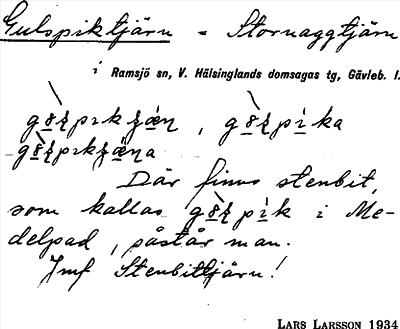 Gulspiktjärn = Stornaggtjärn
i Ramsjö sn, V. Hälsinglands domsagas tg, Gävleb. l.
Där finns stenbit,
som kallas i Me-
delpad, påstår man.
Jmf Stenbittjärn!
LARS LARSSON 1934